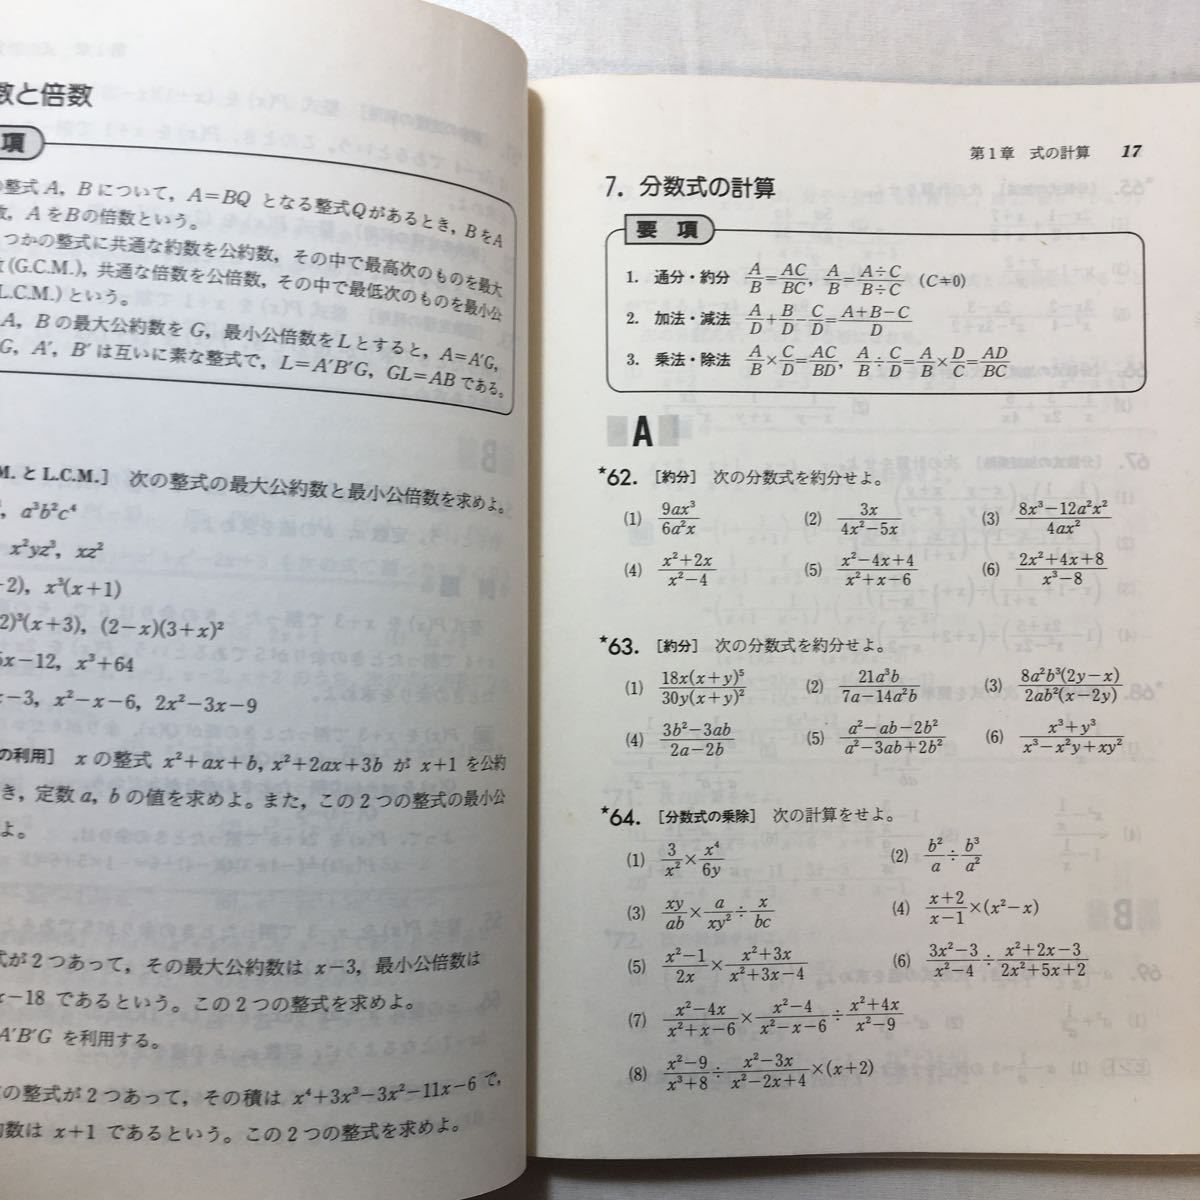 数と倍数
項
整式A, Bについて, A=BQ となる整式Qがあるとき, BをA
数, AをBの倍数という。
つかの整式に共通な約数を公約数, その中で最高次のものを最大
(G.C.M.), 共通な倍数を公倍数, その中で最低次のものを最小公
L.C.M.)という。
A, Bの最大公約数をG, 最小公倍数をLとすると, A=A'G,
G, A', B'は互いに素な整式で, L=A'B'G, GL=ABである。
M. と L.C.M.] 次の整式の最大公約数と最小公倍数を求めよ。
, a³b²c⁴
x²yz³, xz²
-2), x³(x+1)
2)³(x+3), (2-x)(3+x)²
x-12, x³+64
x-3, x²-x-6, 2x²-3x-9
の利用] xの整式 x²+ax+b, x²+2ax+3b が x+1 を公約
き, 定数a, bの値を求めよ。また, この2つの整式の最小公
よ。
式が2つあって, その最大公約数は x-3, 最小公倍数は
x-18 であるという。この2つの整式を求めよ。
A'B'G を利用する。
の整式が2つあって, その積は x⁴+3x³-3x²-11x-6 で,
約数は x+1 であるという。この2つの整式を求めよ。
第1章 式の計算 17
7. 分数式の計算
要 項
1. 通分・約分 A/B=AC/BC, A/B=A÷C/B÷C (C≠0)
2. 加法・減法 A/D+B/D-C/D=A+B-C/D
3. 乗法・除法 A/B×C/D=AC/BD, A/B÷C/D=A/B×D/C=AD/BC
A
*62. [約分] 次の分数式を約分せよ。
(1) 9ax³/6a²x (2) 3x/4x²-5x (3) 8x³-12a²x²/4ax²
(4) x²+2x/x²-4 (5) x²-4x+4/x²+x-6 (6) 2x²+4x+8/x³-8
*63. [約分] 次の分数式を約分せよ。
(1) 18x(x+y)⁵/30y(x+y)² (2) 21a³b/7a-14a²b (3) 8a²b³(2y-x)/2ab²(x-2y)
(4) 3b²-3ab/2a-2b (5) a²-ab-2b²/a²-3ab+2b² (6) x³+y³/x³-x²y+xy²
*64. [分数式の乗除] 次の計算をせよ。
(1) 3/x²×x⁴/6y (2) b²/a÷b³/a²
(3) xy/ab×a/xy²÷x/bc (4) x+2/x-1×(x²-x)
(5) x²-1/2x×x²+3x/x²+3x-4 (6) 3x²-3/x²-4÷x²+2x-3/2x²+5x+2
(7) x²-4x/x²+x-6×x²-4/x²-x-6÷x²+4x/x²-9
(8) x²-9/x³+8÷x²-3x/x²-2x+4×(x+2)